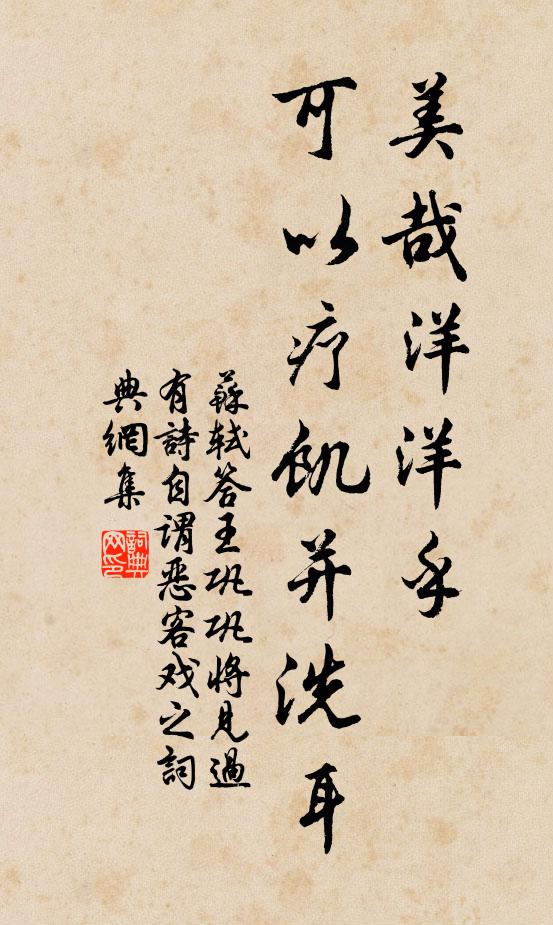 美哉洋洋乎
可以疗飢并洗耳
蘇軾答王巩巩將見過
有詩自谓恶客戏之詞
典網集
詞典
网印